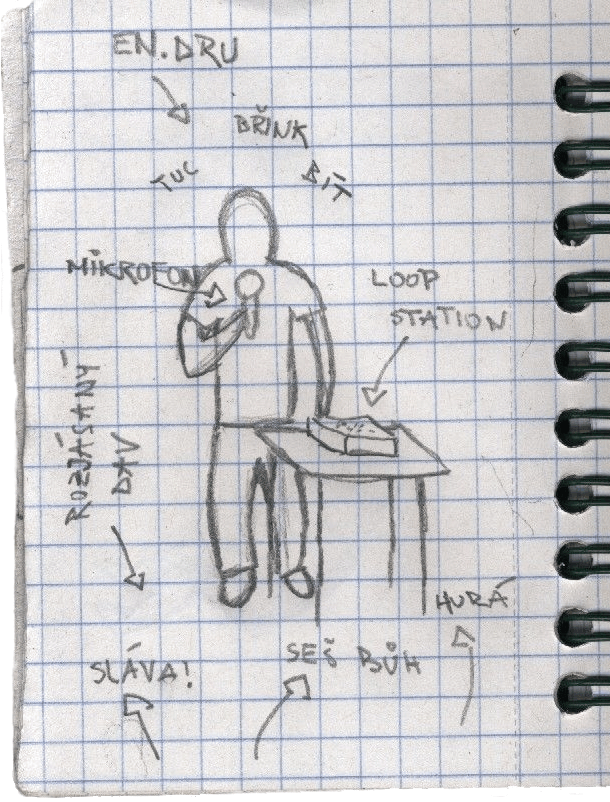 EN.DRU
BŘINK
TUC
BÍT
MIKROFON
LOOP
STATION
ROZJÁSANÝ
DAV
HURÁ
SEŠ BŮH
SLÁVA!